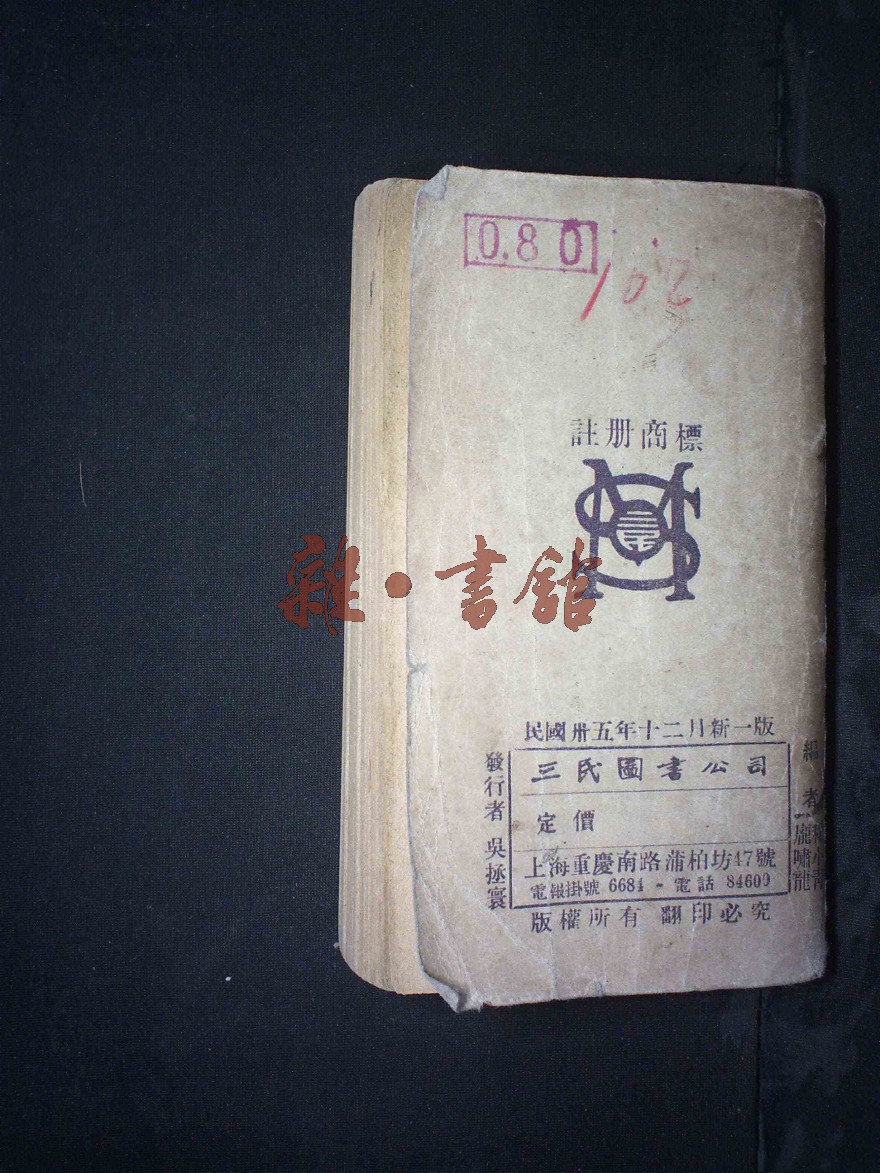 0.80
102
註册商標
三民
雜·書舘
民國卅五年十二月新一版
三民圖書公司
定價
上海重慶南路蒲柏坊47號
電報掛號 6684 - 電話 84609
版權所有 翻印必究
發行者 吳拯寰
編者
龐嘯龍